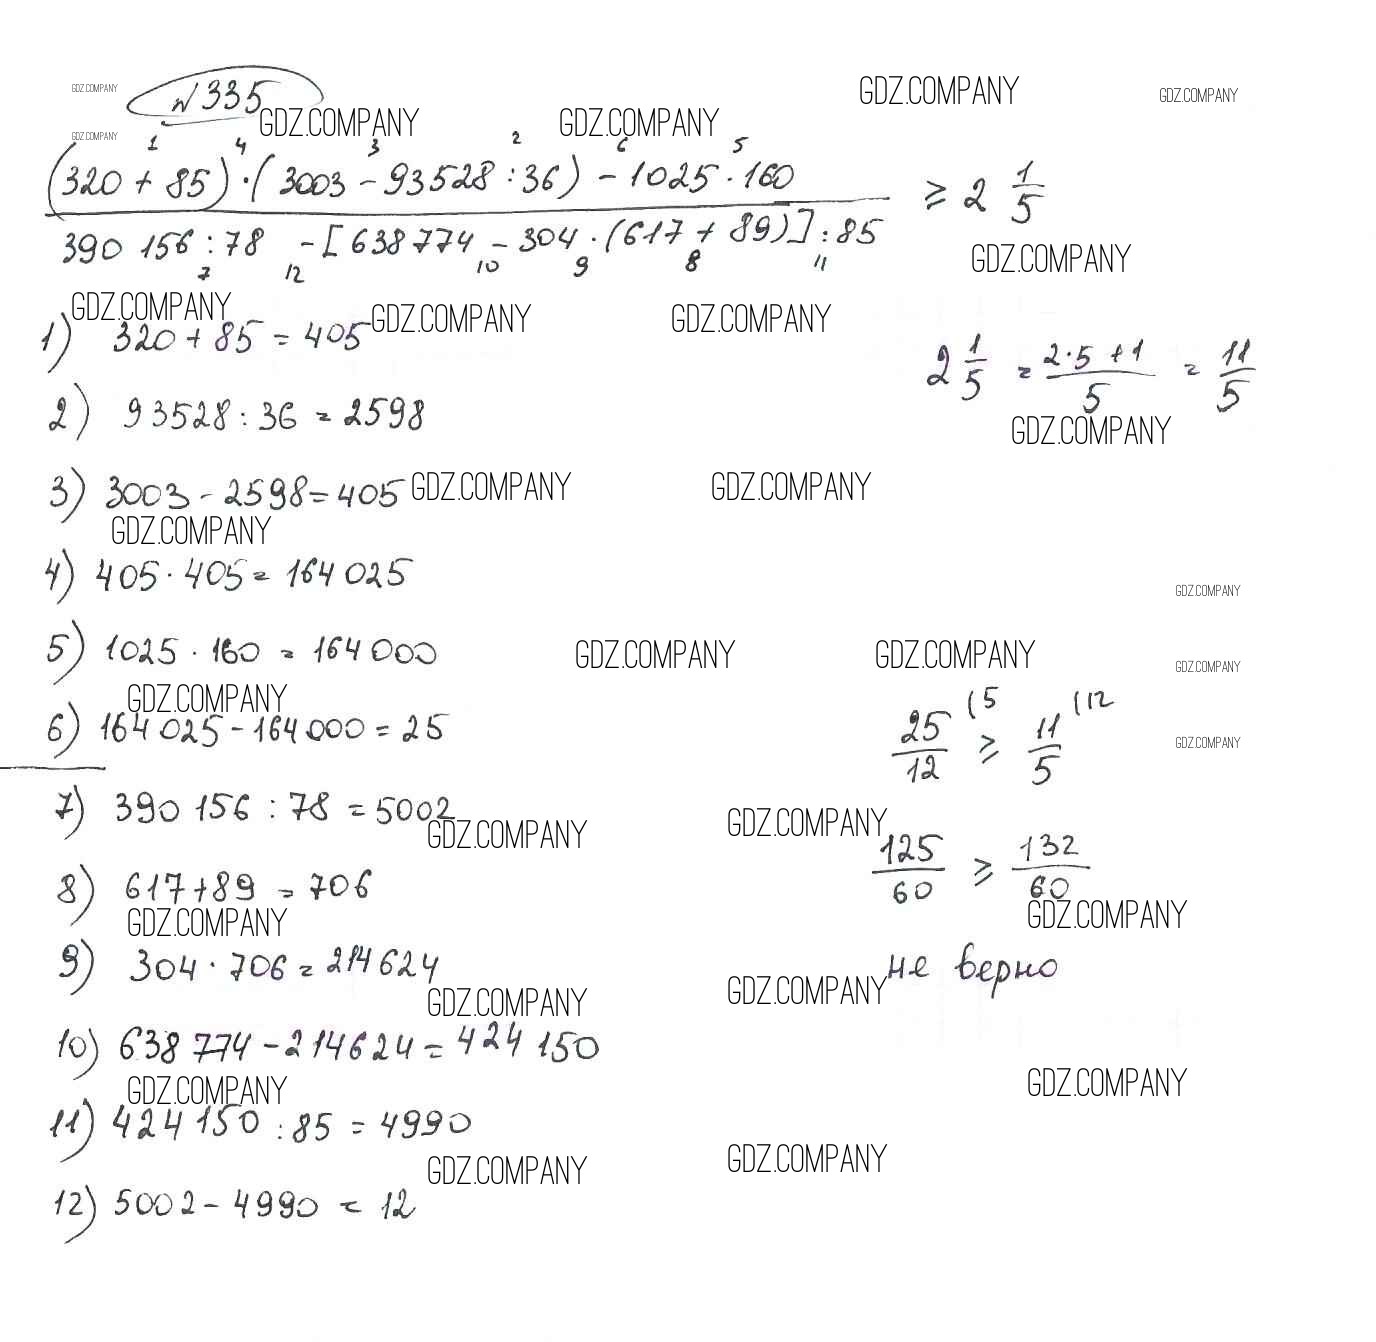 GDZ.COMPANY
GDZ.COMPANY
GDZ.COMPANY
№335
GDZ.COMPANY
GDZ.COMPANY
GDZ.COMPANY
1 4 3 2 6 5
(320 + 85) · (3003 - 93528 : 36) - 1025 · 160
≥ 2 1/5
390 156 : 78 - [638774 - 304 · (617 + 89)] : 85
7 12 10 9 8 11
GDZ.COMPANY
GDZ.COMPANY
GDZ.COMPANY
GDZ.COMPANY
1) 320 + 85 = 405
2 1/5 = 2·5+1/5 = 11/5
2) 93528 : 36 = 2598
GDZ.COMPANY
3) 3003 - 2598 = 405
GDZ.COMPANY
GDZ.COMPANY
GDZ.COMPANY
4) 405 · 405 = 164 025
GDZ.COMPANY
5) 1025 · 160 = 164 000
GDZ.COMPANY
GDZ.COMPANY
GDZ.COMPANY
GDZ.COMPANY
6) 164 025 - 164 000 = 25
25/12 (5 ≥ 11/5 (12
GDZ.COMPANY
7) 390 156 : 78 = 5002
GDZ.COMPANY
GDZ.COMPANY
125/60 ≥ 132/60
8) 617 + 89 = 706
GDZ.COMPANY
GDZ.COMPANY
9) 304 · 706 = 214 624
не верно
GDZ.COMPANY
GDZ.COMPANY
10) 638 774 - 214624 = 424 150
GDZ.COMPANY
GDZ.COMPANY
11) 424 150 : 85 = 4990
GDZ.COMPANY
GDZ.COMPANY
12) 5002 - 4990 = 12